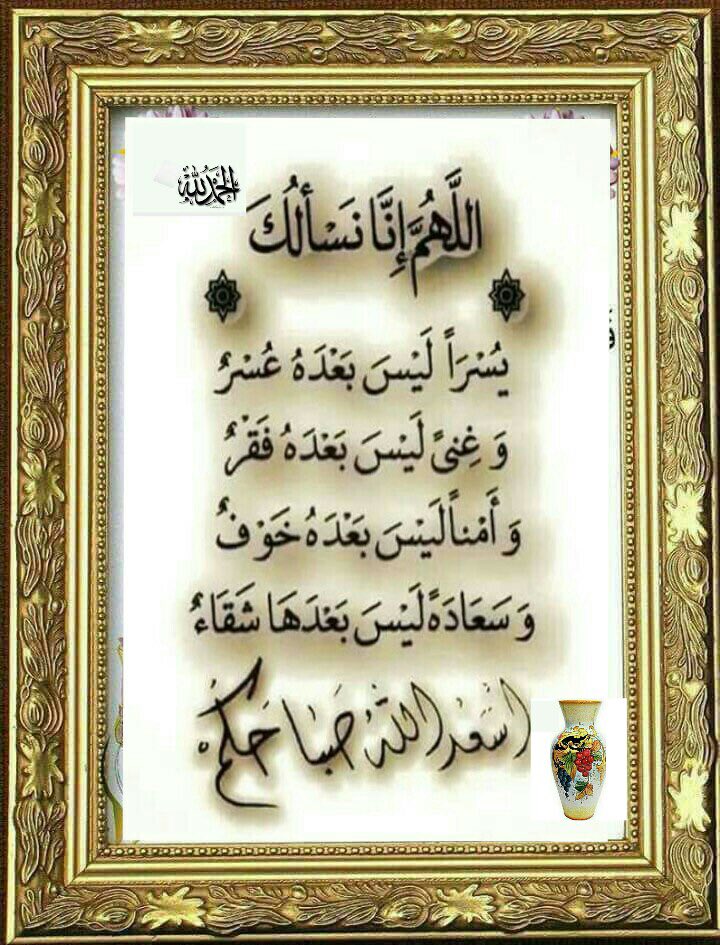 الحمد لله
اللَّهُمَّ إِنَّا نَسْأَلُكَ
يُسْرَاً لَيْسَ بَعْدَهُ عُسْرٌ
وَ غِنىً لَيْسَ بَعْدَهُ فَقْرٌ
وَ أَمْناً لَيْسَ بَعْدَهُ خَوْفٌ
وَ سَعَادَةً لَيْسَ بَعْدَهَا شَقَاءٌ
اسعد الله صباحكم